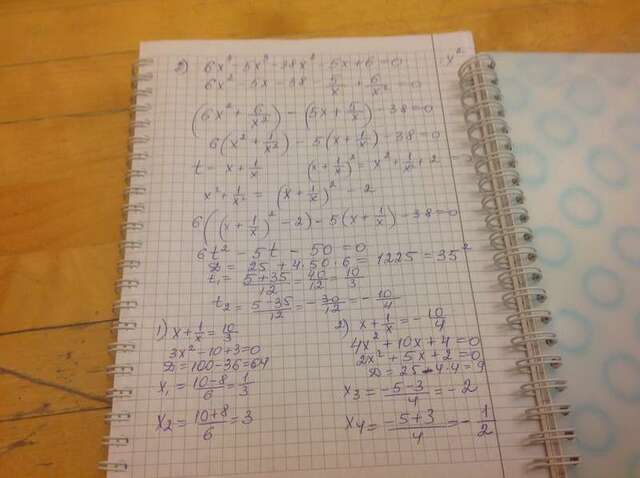 2) 6x⁴ - 5x³ - 38x² - 5x + 6 = 0
x²
6x² - 5x - 38 - 5/x + 6/x² = 0
(6x² + 6/x²) - (5x + 5/x) - 38 = 0
6(x² + 1/x²) - 5(x + 1/x) - 38 = 0
t - x + 1/x (x + 1/x)² = x² + 1/x² + 2
x² + 1/x² = (x + 1/x)² - 2
6((x + 1/x)² - 2) - 5(x + 1/x) - 38 = 0
6t² - 5t - 50 = 0
D = 25 + 4·50·6 = 1225 = 35²
t₁ = (5 + 35)/12 = 40/12 = 10/3
t₂ = (5 - 35)/12 = -30/12 = -10/4
1) x + 1/x = 10/3
3x² - 10 + 3 = 0
D = 100 - 36 = 64
x₁ = (10 - 8)/6 = 1/3
x₂ = (10 + 8)/6 = 3
2) x + 1/x = -10/4
4x² + 10x + 4 = 0
2x² + 5x + 2 = 0
D = 25 - 4·4 = 9
x₃ = (-5 - 3)/4 = -2
x₄ = (-5 + 3)/4 = -1/2